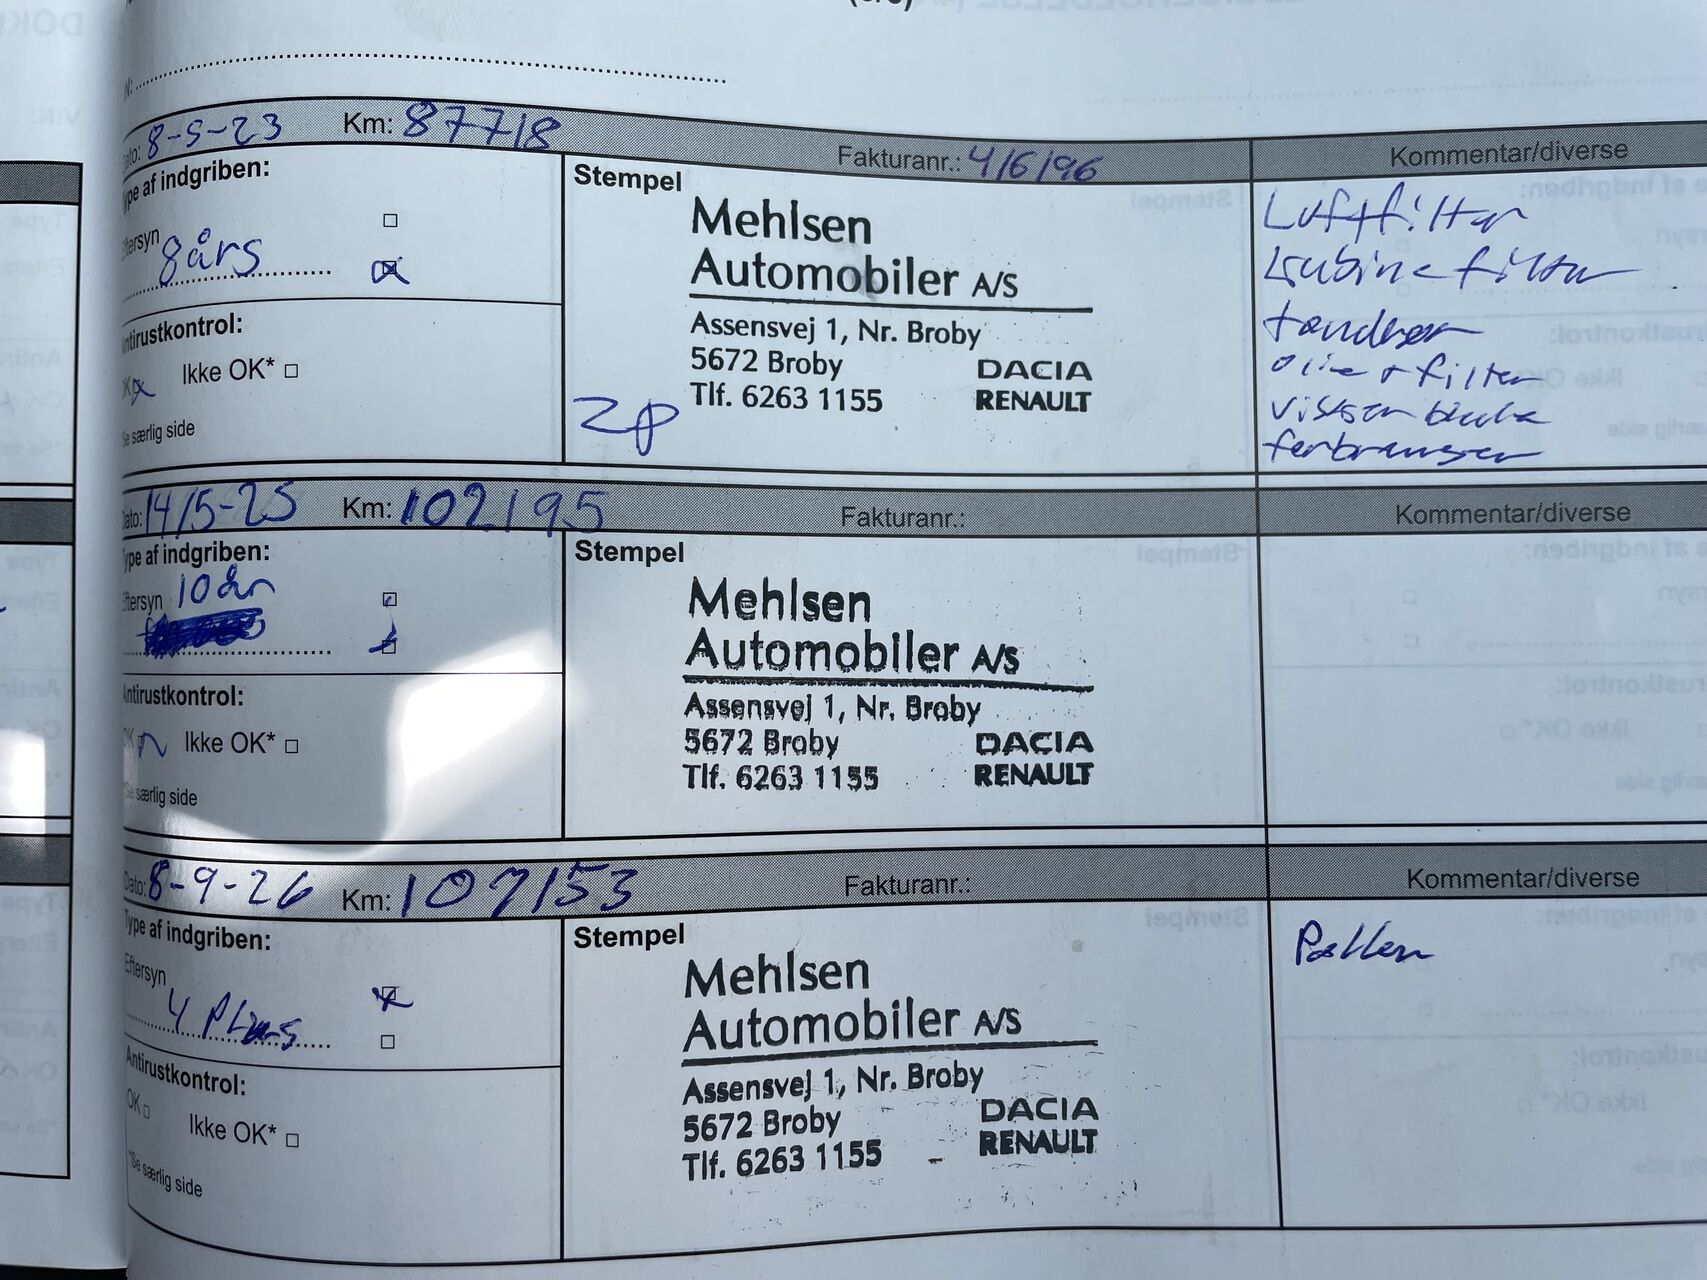 Dato: 8-5-23 Km: 87718 Fakturanr.: 416196 Kommentar/diverse
Type af indgriben:
Eftersyn
8års
Antirustkontrol:
OK Ikke OK*
Se særlig side
Stempel
Mehlsen
Automobiler A/S
Assensvej 1, Nr. Broby
5672 Broby DACIA
Tlf. 6263 1155 RENAULT
Luftfilter
kabinefilter
tændrør
olie + filter
Dato: 14/5-25 Km: 102195 Fakturanr.: Kommentar/diverse
Type af indgriben:
Eftersyn 10år
Antirustkontrol:
OK Ikke OK*
*Se særlig side
Stempel
Mehlsen
Automobiler A/S
Assensvej 1, Nr. Broby
5672 Broby DACIA
Tlf. 6263 1155 RENAULT
Dato: 8-9-26 Km: 107153 Fakturanr.: Kommentar/diverse
Type af indgriben:
Eftersyn
4 Plus
Antirustkontrol:
OK Ikke OK*
*Se særlig side
Stempel
Mehlsen
Automobiler A/S
Assensvej 1, Nr. Broby
5672 Broby DACIA
Tlf. 6263 1155 RENAULT
Pollen